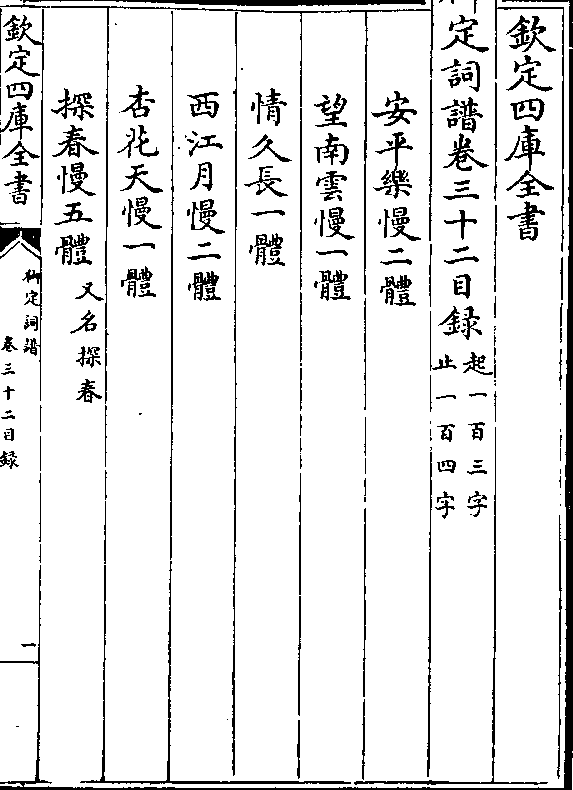 欽定四庫全書
御定詞譜卷三十二目録起一百三字止一百四字
安平樂慢二體
望南雲慢一體
情久長一體
西江月慢二體
杏花天慢一體
探春慢五體又名探春
欽定四庫全書
御定詞譜
卷三十二目録
一